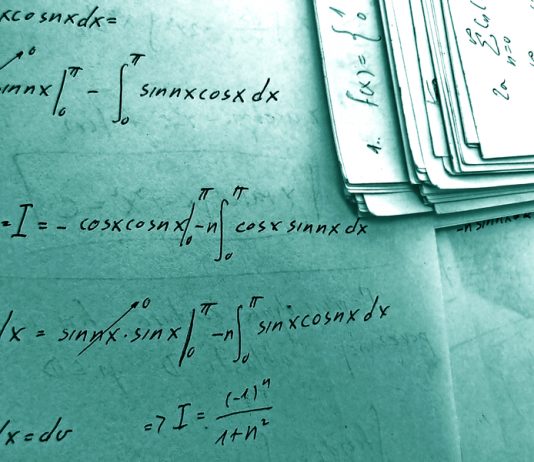 xcosnxdx=
innx|₀^π - ∫₀^π sinnxcosx dx
0
= I = - cosxcosnx|₀^π -n∫₀^π cosx sinnx dx
x = sinnx·sinx|₀^π -n∫₀^π sinxcosnx dx
0
x=dv => I = (-1)ⁿ/1+n²
1.. f(x) = { 1 0
∑ n=0
2a